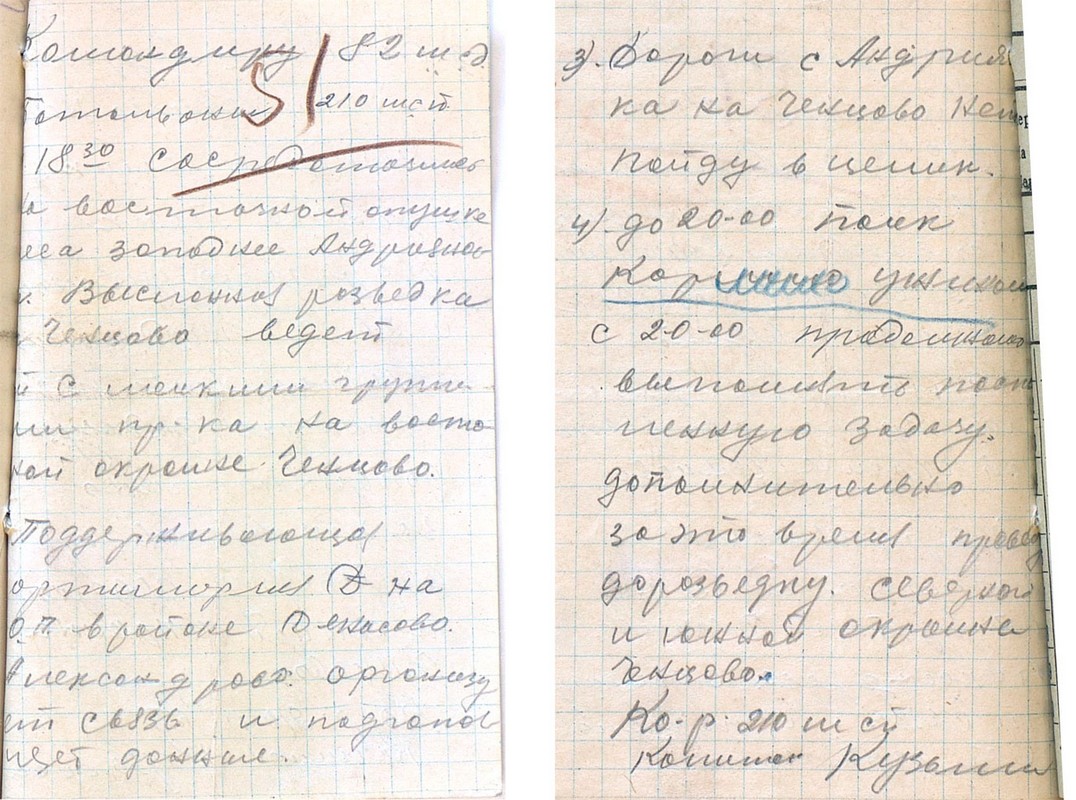 Командиру 82 шсд
51
210 шсп
18 30 сосредоточился
восточной опушке
западнее Андрияно
Высланная розведка
Ченцово ведет
с мелкими группа
ми пр-ка на восто
ной окраине Ченцово.
Поддерживающая
артиллерия на
ОП в районе Денасово.
Александрово. Организу
ет связь и подготов
ляет данные.
3). Дороги с Андриян
ка на Ченцово нет
пойду в целик.
4). до 20-00 полк
Кормлю ужином
с 20-00 продолжаю
выполнять постав
ленную задачу.
дополнительно
за это время провед
доразведку. северной
и южной окраины
Ченцово.
Ко-р. 210 шсп
Капитан Кузьмин